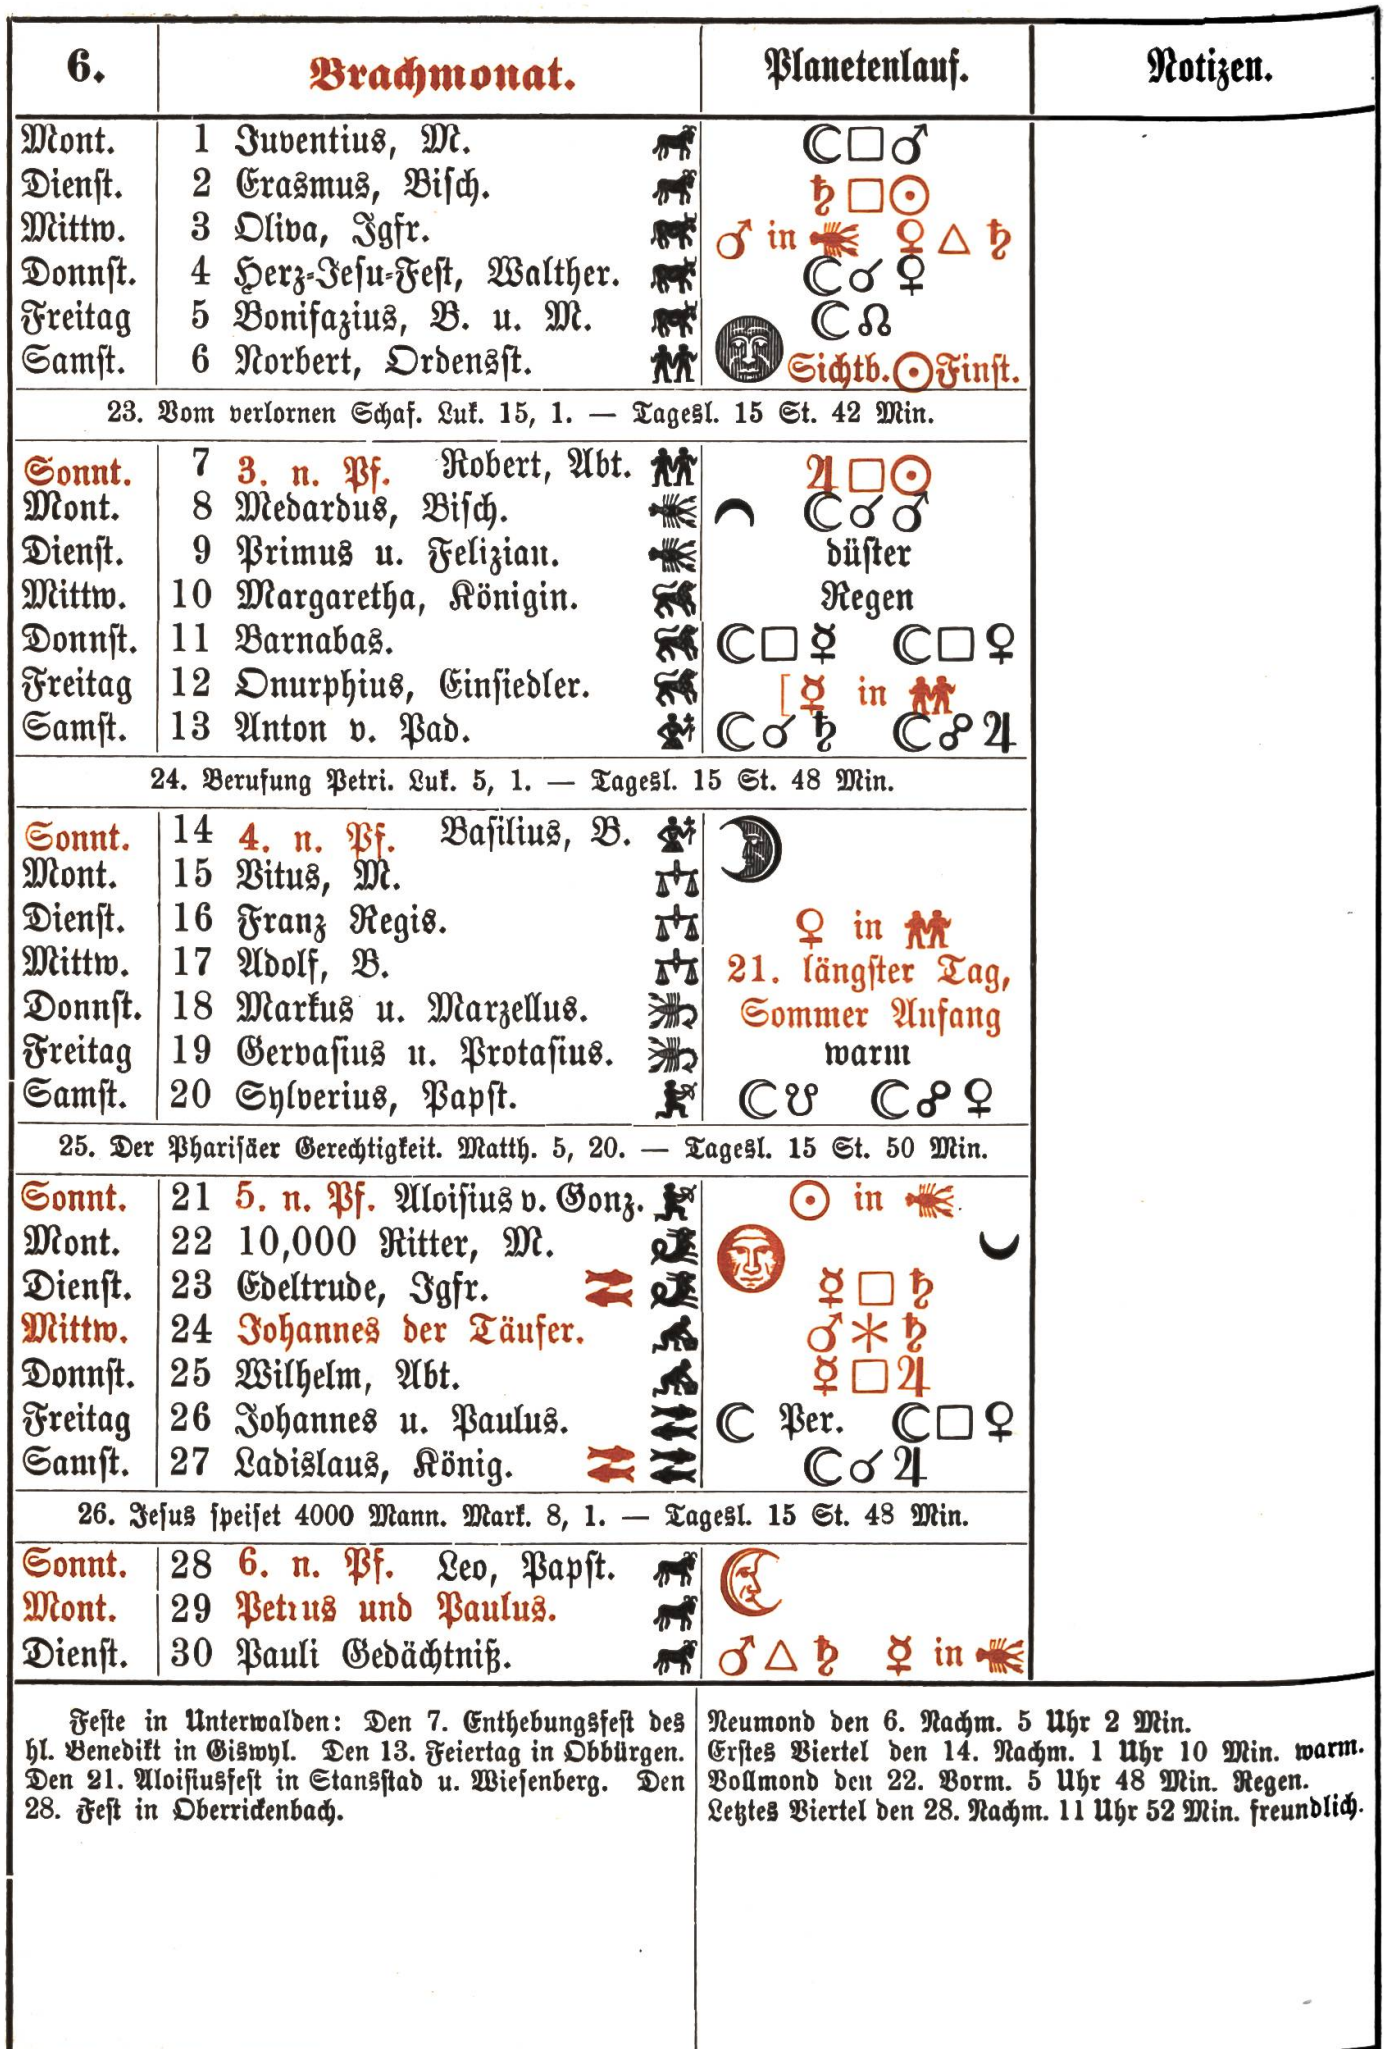 6. Brachmonat. Planetenlauf. Notizen.
Mont. 1 Juventius, M. ☾□♂
Dienst. 2 Erasmus, Bisch. ♄□☉
Mittw. 3 Oliva, Jgfr. ♂ in ♋ ♀△♄
Donnst. 4 Herz-Jesu-Fest, Walther. ☾☌♀
Freitag 5 Bonifazius, B. u. M. ☾☊
Samst. 6 Norbert, Ordensst. Sichtb.☉Finst.
23. Vom verlornen Schaf. Luk. 15, 1. — Tagesl. 15 St. 42 Min.
Sonnt. 7 3. n. Pf. Robert, Abt. ♃□☉
Mont. 8 Medardus, Bisch. ☾☌♂
Dienst. 9 Primus u. Felizian. düster
Mittw. 10 Margaretha, Königin. Regen
Donnst. 11 Barnabas. ☾□☿ ☾□♀
Freitag 12 Onurphius, Einsiedler. [☿ in ♊
Samst. 13 Anton v. Pad. ☾☌♄ ☾☍♃
24. Berufung Petri. Luk. 5, 1. — Tagesl. 15 St. 48 Min.
Sonnt. 14 4. n. Pf. Basilius, B.
Mont. 15 Vitus, M.
Dienst. 16 Franz Regis. ♀ in ♊
Mittw. 17 Adolf, B. 21. längster Tag,
Donnst. 18 Markus u. Marzellus. Sommer Anfang
Freitag 19 Gervasius u. Protasius. warm
Samst. 20 Sylverius, Papst. ☾☋ ☾☍♀
25. Der Pharisäer Gerechtigkeit. Matth. 5, 20. — Tagesl. 15 St. 50 Min.
Sonnt. 21 5. n. Pf. Aloisius v. Gonz. ☉ in ♋
Mont. 22 10,000 Ritter, M.
Dienst. 23 Edeltrude, Jgfr. ☿□♄
Mittw. 24 Johannes der Täufer. ♂⚹♄
Donnst. 25 Wilhelm, Abt. ☿□♃
Freitag 26 Johannes u. Paulus. ☾ Per. ☾□♀
Samst. 27 Ladislaus, König. ☾☌♃
26. Jesus speiset 4000 Mann. Mark. 8, 1. — Tagesl. 15 St. 48 Min.
Sonnt. 28 6. n. Pf. Leo, Papst.
Mont. 29 Petrus und Paulus.
Dienst. 30 Pauli Gedächtniß. ♂△♄ ☿ in ♋
Feste in Unterwalden: Den 7. Enthebungsfest des
hl. Benedikt in Giswyl. Den 13. Feiertag in Obbürgen.
Den 21. Aloisiusfest in Stansstad u. Wiesenberg. Den
28. Fest in Oberrickenbach.
Neumond den 6. Nachm. 5 Uhr 2 Min.
Erstes Viertel den 14. Nachm. 1 Uhr 10 Min. warm.
Vollmond den 22. Vorm. 5 Uhr 48 Min. Regen.
Letztes Viertel den 28. Nachm. 11 Uhr 52 Min. freundlich.